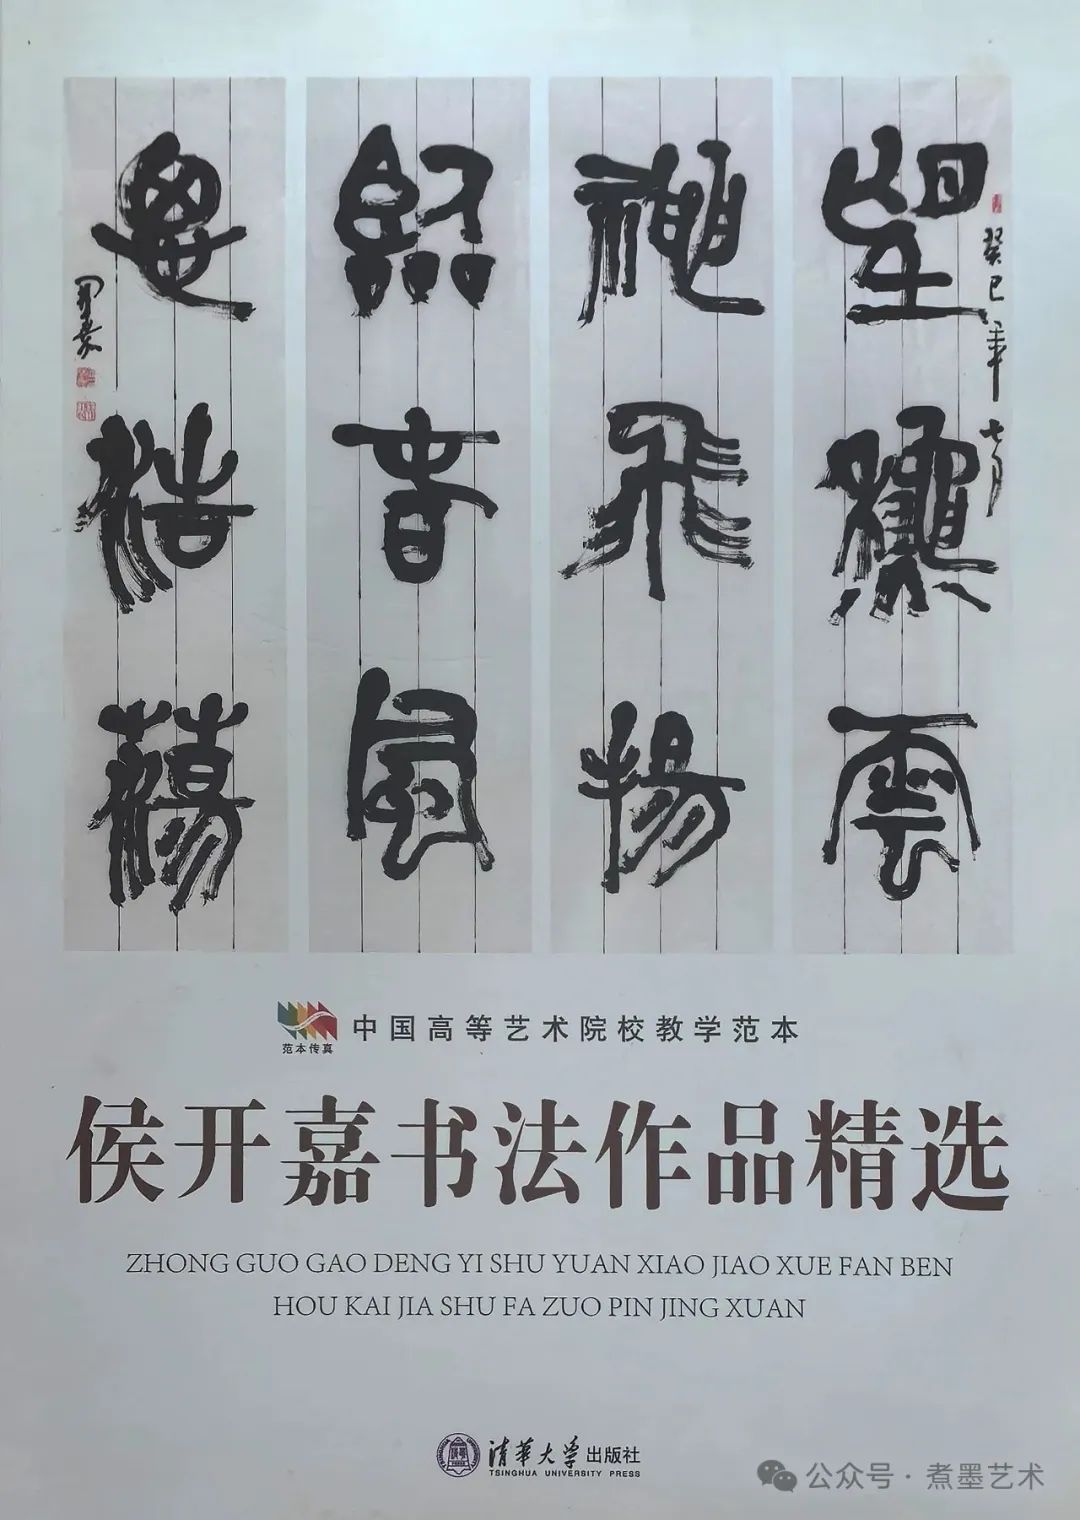 癸巳年七月
望龝雲
神飛揚
臨春風
思浩蕩
开嘉
范本传真
中国高等艺术院校教学范本
侯开嘉书法作品精选
ZHONG GUO GAO DENG YI SHU YUAN XIAO JIAO XUE FAN BEN
HOU KAI JIA SHU FA ZUO PIN JING XUAN
清华大学出版社
TSINGHUA UNIVERSITY PRESS
公众号·煮墨艺术